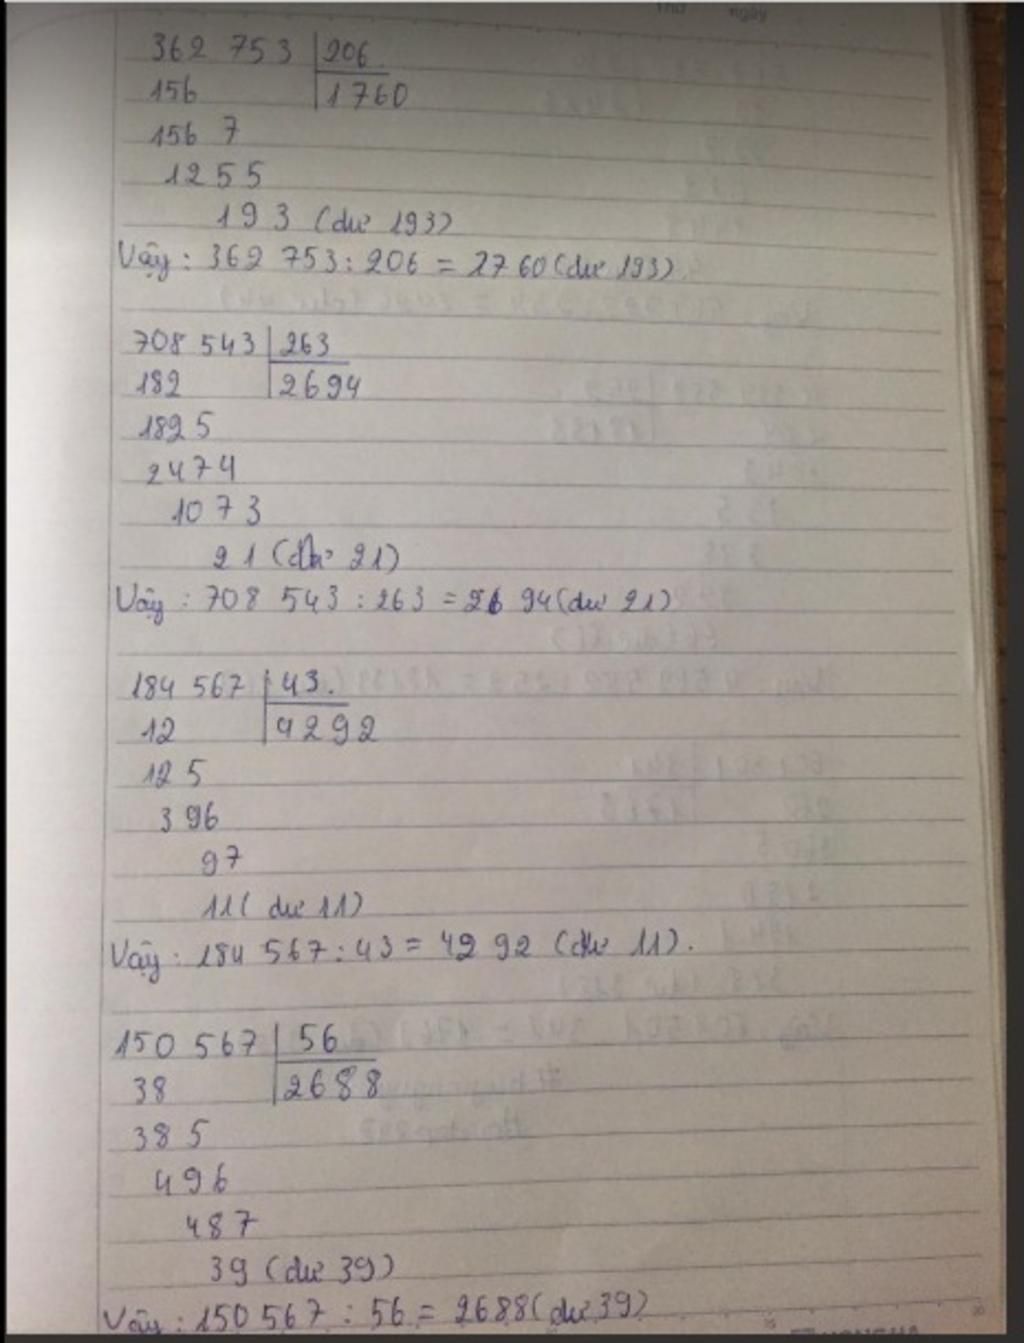 Thứ ngày
362 753 206
156 1760
156 7
1255
193 (dư 193)
Vậy : 362 753 : 206 = 1760 (dư 193)
708 543 263
182 2694
182 5
2474
1073
21 (dư 21)
Vậy : 708 543 : 263 = 2694 (dư 21)
184 567 43.
12 4292
12 5
396
97
11 (dư 11)
Vậy : 184 567 : 43 = 4292 (dư 11).
150 567 56
38 2688
38 5
496
487
39 (dư 39)
Vậy : 150 567 : 56 = 2688 (dư 39)
15 20